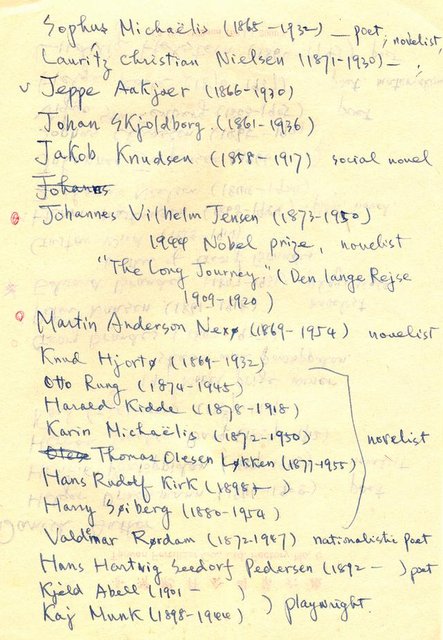 Sophus Michaëlis (1865-1932) — poet, novelist,
Lauritz Christian Nielsen (1871-1930) — ,
v Jeppe Aakjær (1866-1930)
Johan Skjoldborg (1861-1936)
Jakob Knudsen (1858-1917) social novel
Johanns
Johannes Vilhelm Jensen (1873-1950)
1944 Nobel prize, novelist
"The Long Journey" (Den lange Rejse
1909-1920)
Martin Anderson Nexø (1869-1954) novelist
Knud Hjortø (1869-1932)
Otto Rung (1874-1945)
Harald Kidde (1878-1918)
Karin Michaëlis (1872-1950) novelist
Thomas Olesen Løkken (1877-1955)
Hans Rudolf Kirk (1898- )
Harry Søiberg (1880-1954)
Valdimar Rørdam (1872-1947) nationalistic poet
Hans Hartvig Seedorf Pedersen (1892 - ) poet
Kjeld Abell (1901 - )
Kaj Munk (1898-1944) ) playwright.